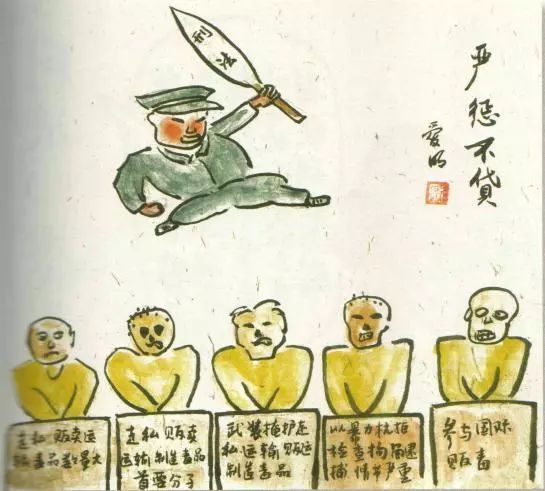 严惩不貸
爱明
刑法
走私贩卖运
输毒品数量大
走私贩卖
运输制造毒品
首要分子
武装掩护走
私运输贩运
制造毒品
以暴力抗拒
检查拘留逮
捕情节严重
参与国际
贩毒